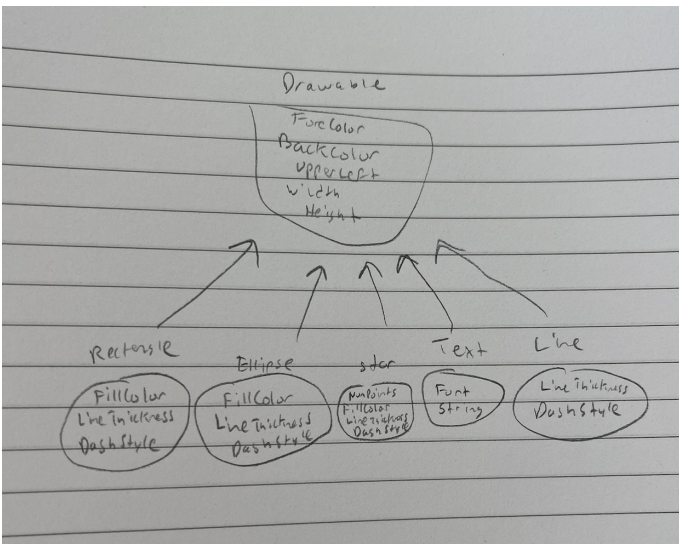 Drawable
ForeColor
BackColor
UpperLeft
Width
Height
Rectangle
Ellipse
Star
Text
Line
FillColor
LineThickness
DashStyle
FillColor
LineThickness
DashStyle
NumPoints
FillColor
LineThickness
DashStyle
Font
String
LineThickness
DashStyle